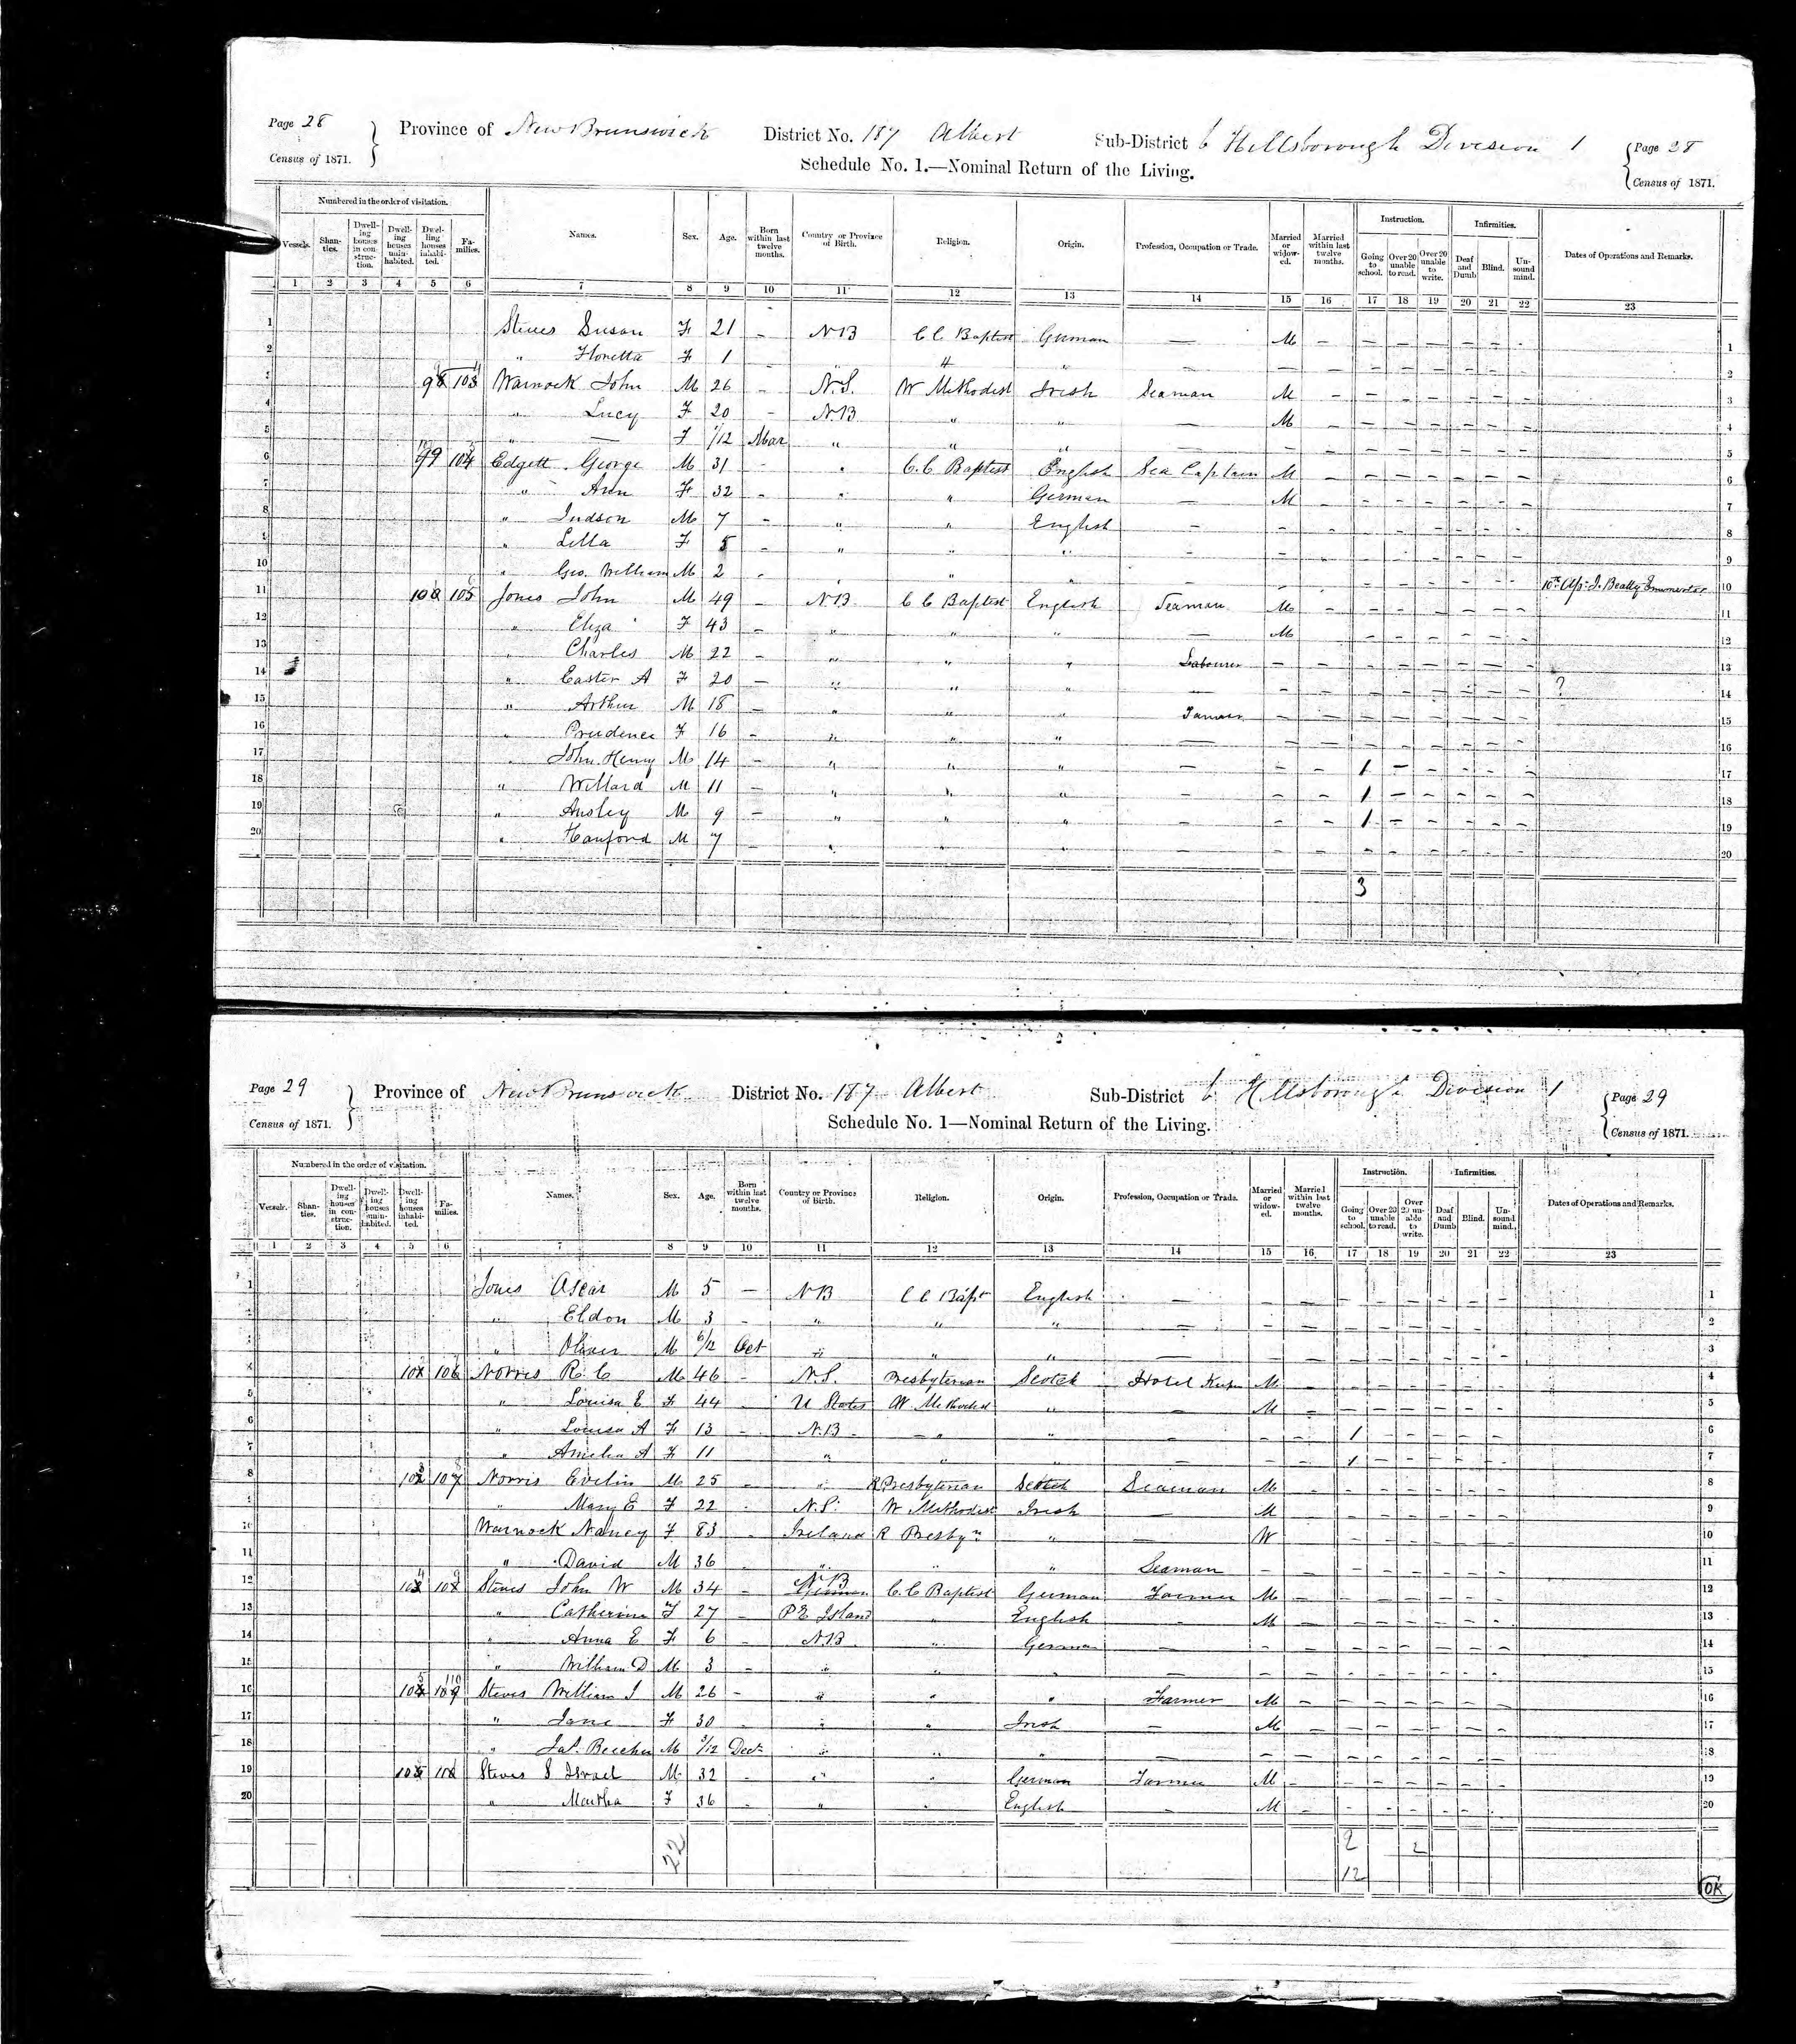 Page 28
Census of 1871.
Province of New Brunswick District No. 187 Albert Sub-District b Hillsborough Division 1
Page 28
Census of 1871.
Schedule No. 1.—Nominal Return of the Living.
Numbered in the order of visitation. Instruction. Infirmities.
Vessels. Shanties. Dwelling houses in construction. Dwelling houses uninhabited. Dwelling houses inhabited. Families. Names. Sex. Age. Born within last twelve months. Country or Province of Birth. Religion. Origin. Profession, Occupation or Trade. Married or widowed. Married within last twelve months. Going to school. Over 20 unable to read. Over 20 unable to write. Deaf and Dumb Blind. Unsound mind. Dates of Operations and Remarks.
1 2 3 4 5 6 7 8 9 10 11 12 13 14 15 16 17 18 19 20 21 22 23
1 Steves Susan F 21 — N B C C Baptist German — M — — — — — — — 1
2 " Floretta F 1 " " " — — — — — — — — — 2
3 Warnock John M 26 — N.S. W Methodist Irish Seaman M — — — — — — — 3
4 " Lucy F 20 — N.B " " — M — — — — — — — 4
5 " — F 1/12 Mar " " " — — — — — — — — — 5
6 99 104 Edgett George M 31 - " C.C. Baptist English Sea Captain M — — — — — — — 6
7 " Ann F 32 — " " German — M — — — — — — — 7
8 " Judson M 7 — " " English — — — — — — — — — 8
9 " Lilla F 5 — " " " — — — — — — — — — 9
10 " Geo. William M 2 - " " " — — — — — — — — — 10
11 105 Jones John M 49 — N.B. C C Baptist English Seaman M — — — — — — — 11
12 " Eliza F 43 — " " " — M — — — — — — — 12
13 " Charles M 22 — " " " Labourer — — — — — — — — 13
14 " Easter A F 20 — " " " — — — — — — — — — ? 14
15 " Arthur M 18 — " " " — — — — — — — — 15
16 " Prudence F 16 — " " " — — — — — — — — — 16
17 " John Henry M 14 — " " " — — — 1 — — — — — 17
18 " Willard M 11 — " " " — — — 1 — — — — — 18
19 " Ansley M 9 — " " " — — — 1 — — — — — 19
20 " Hanford M 7 — " " " — — — — — — — — — 20
3
Page 29
Census of 1871.
Province of New Brunswick District No. 187 Albert Sub-District b Hillsborough Division 1
Page 29
Census of 1871.
Schedule No. 1—Nominal Return of the Living.
Numbered in the order of visitation. Instruction. Infirmities.
Vessels. Shanties. Dwelling houses in construction. Dwelling houses uninhabited. Dwelling houses inhabited. Families. Names. Sex. Age. Born within last twelve months. Country or Province of Birth. Religion. Origin. Profession, Occupation or Trade. Married or widowed. Married within last twelve months. Going to school. Over 20 unable to read. Over 20 unable to write. Deaf and Dumb Blind. Unsound mind. Dates of Operations and Remarks.
1 2 3 4 5 6 7 8 9 10 11 12 13 14 15 16 17 18 19 20 21 22 23
1 Jones M 5 — N B C C Bapt English — — — — — — — — — 1
2 " Eldon M 3 - " " " — — — — — — — — — 2
3 " Oliver M 6/12 Oct " " " — — — — — — — — — 3
4 106 Norris R. C M 46 - N.S. Presbyterian Scotch Hotel Keeper M — — — — — — — 4
5 " Louisa E F 44 - U States W. Methodist " — M — — — — — — — 5
6 " Louisa A F 13 - N.B - " " — — — 1 — — — — — 6
7 " Amelia A F 11 " " " — — — 1 — — — — — 7
8 107 Norris Evelin M 25 - " R Presbyterian Scotch Seaman M — — — — — — — 8
9 " Mary E F 22 - N.S. W Methodist Irish — M — — — — — — — 9
10 Warnock Nancy F 83 - Ireland R Presbyn " — W — — — — — — — 10
11 " David M 36 " " " Seaman — — — — — — — — 11
12 Steves John W M 34 - N B C.C Baptist German Farmer M — — — — — — — 12
13 " Catherine F 27 — P E Island " English — M — — — — — — — 13
14 " Anna E F 6 - N.B " German — — — — — — — — — 14
15 " William D M 3 - " " " — — — — — — — — — 15
16 Steves William J M 26 - " " " Farmer M — — — — — — — 16
17 " Jane F 30 " " Irish — M — — — — — — — 17
18 " Jas. Beecher M Dec " " " — — — — — — — — — 18
19 Steves S Israel M 32 - " " German Farmer M — — — — — — — 19
20 " Martha F 36 - " " English — M — — — — — — — 20
22 2 2
12
OK